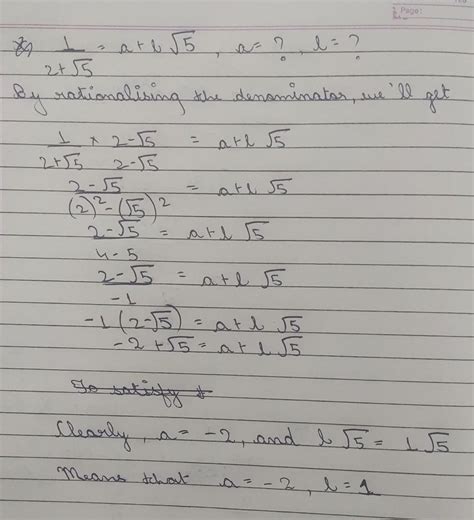 Page:
1/(2+√5) = a+b√5 , a = ? , b = ?
By rationalising the denominator, we'll get
1/(2+√5) × (2-√5)/(2-√5) = a+b√5
(2-√5)/((2)²-(√5)²) = a+b√5
(2-√5)/(4-5) = a+b√5
(2-√5)/-1 = a+b√5
-1(2-√5) = a+b√5
-2+√5 = a+b√5
To satisfy
Clearly, a = -2, and b√5 = 1√5
Means that a = -2, b = 1